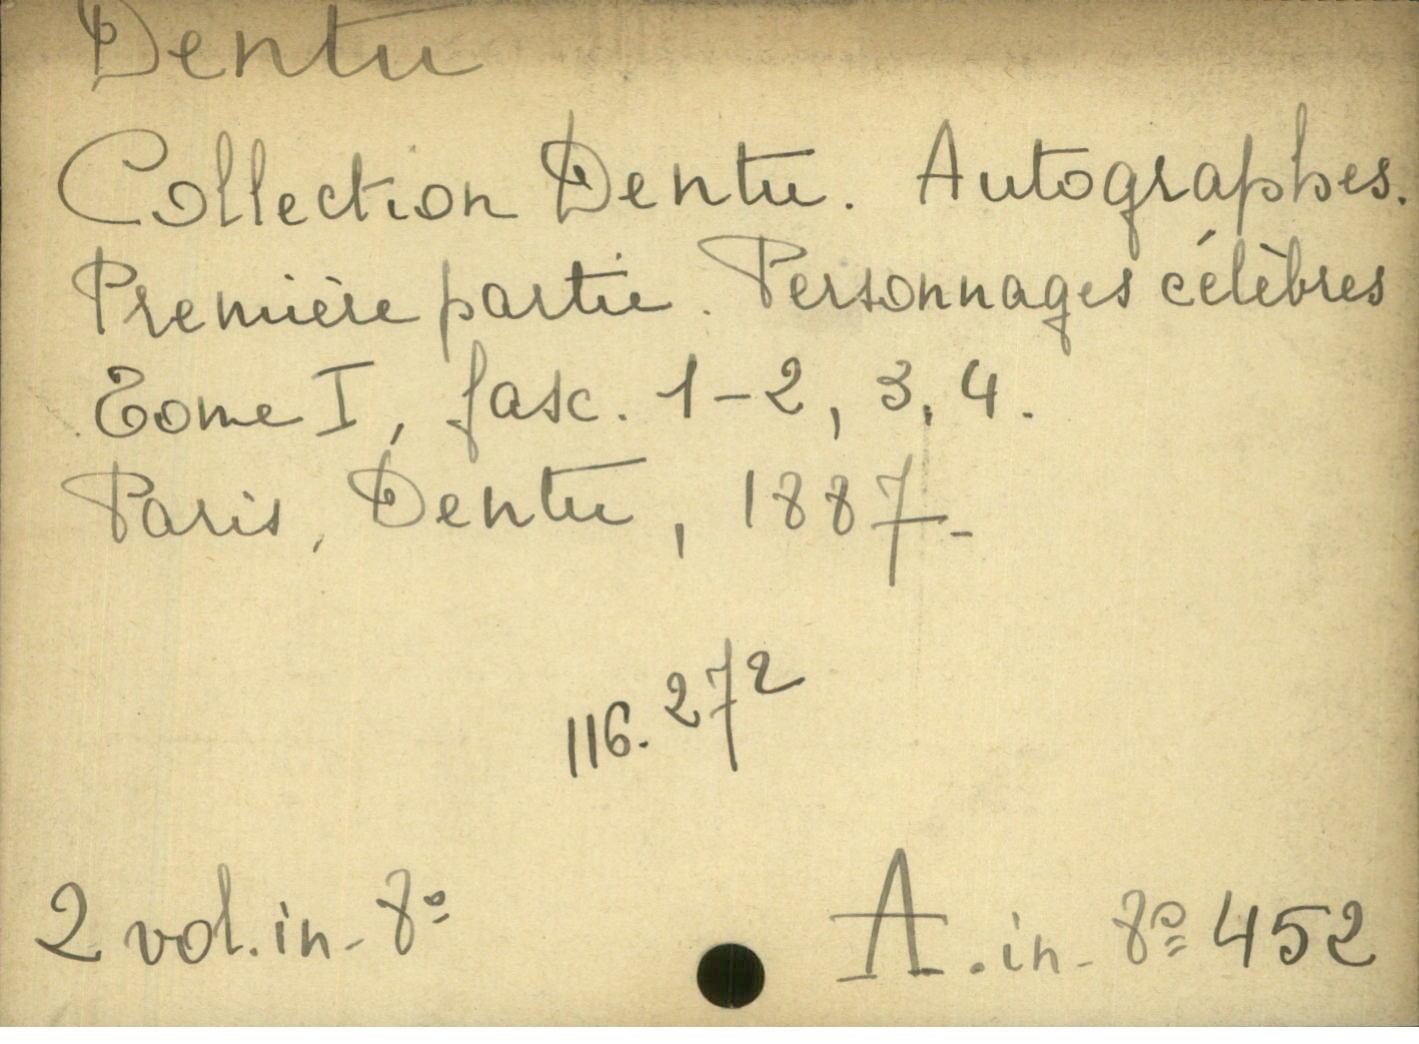 Dentu
Collection Dentu. Autographes.
Première partie. Personnages célèbres
Tome I, fasc. 1-2, 3, 4.
Paris, Dentu, 1887-
116.272
2 vol. in-8º
A. in-8º 452